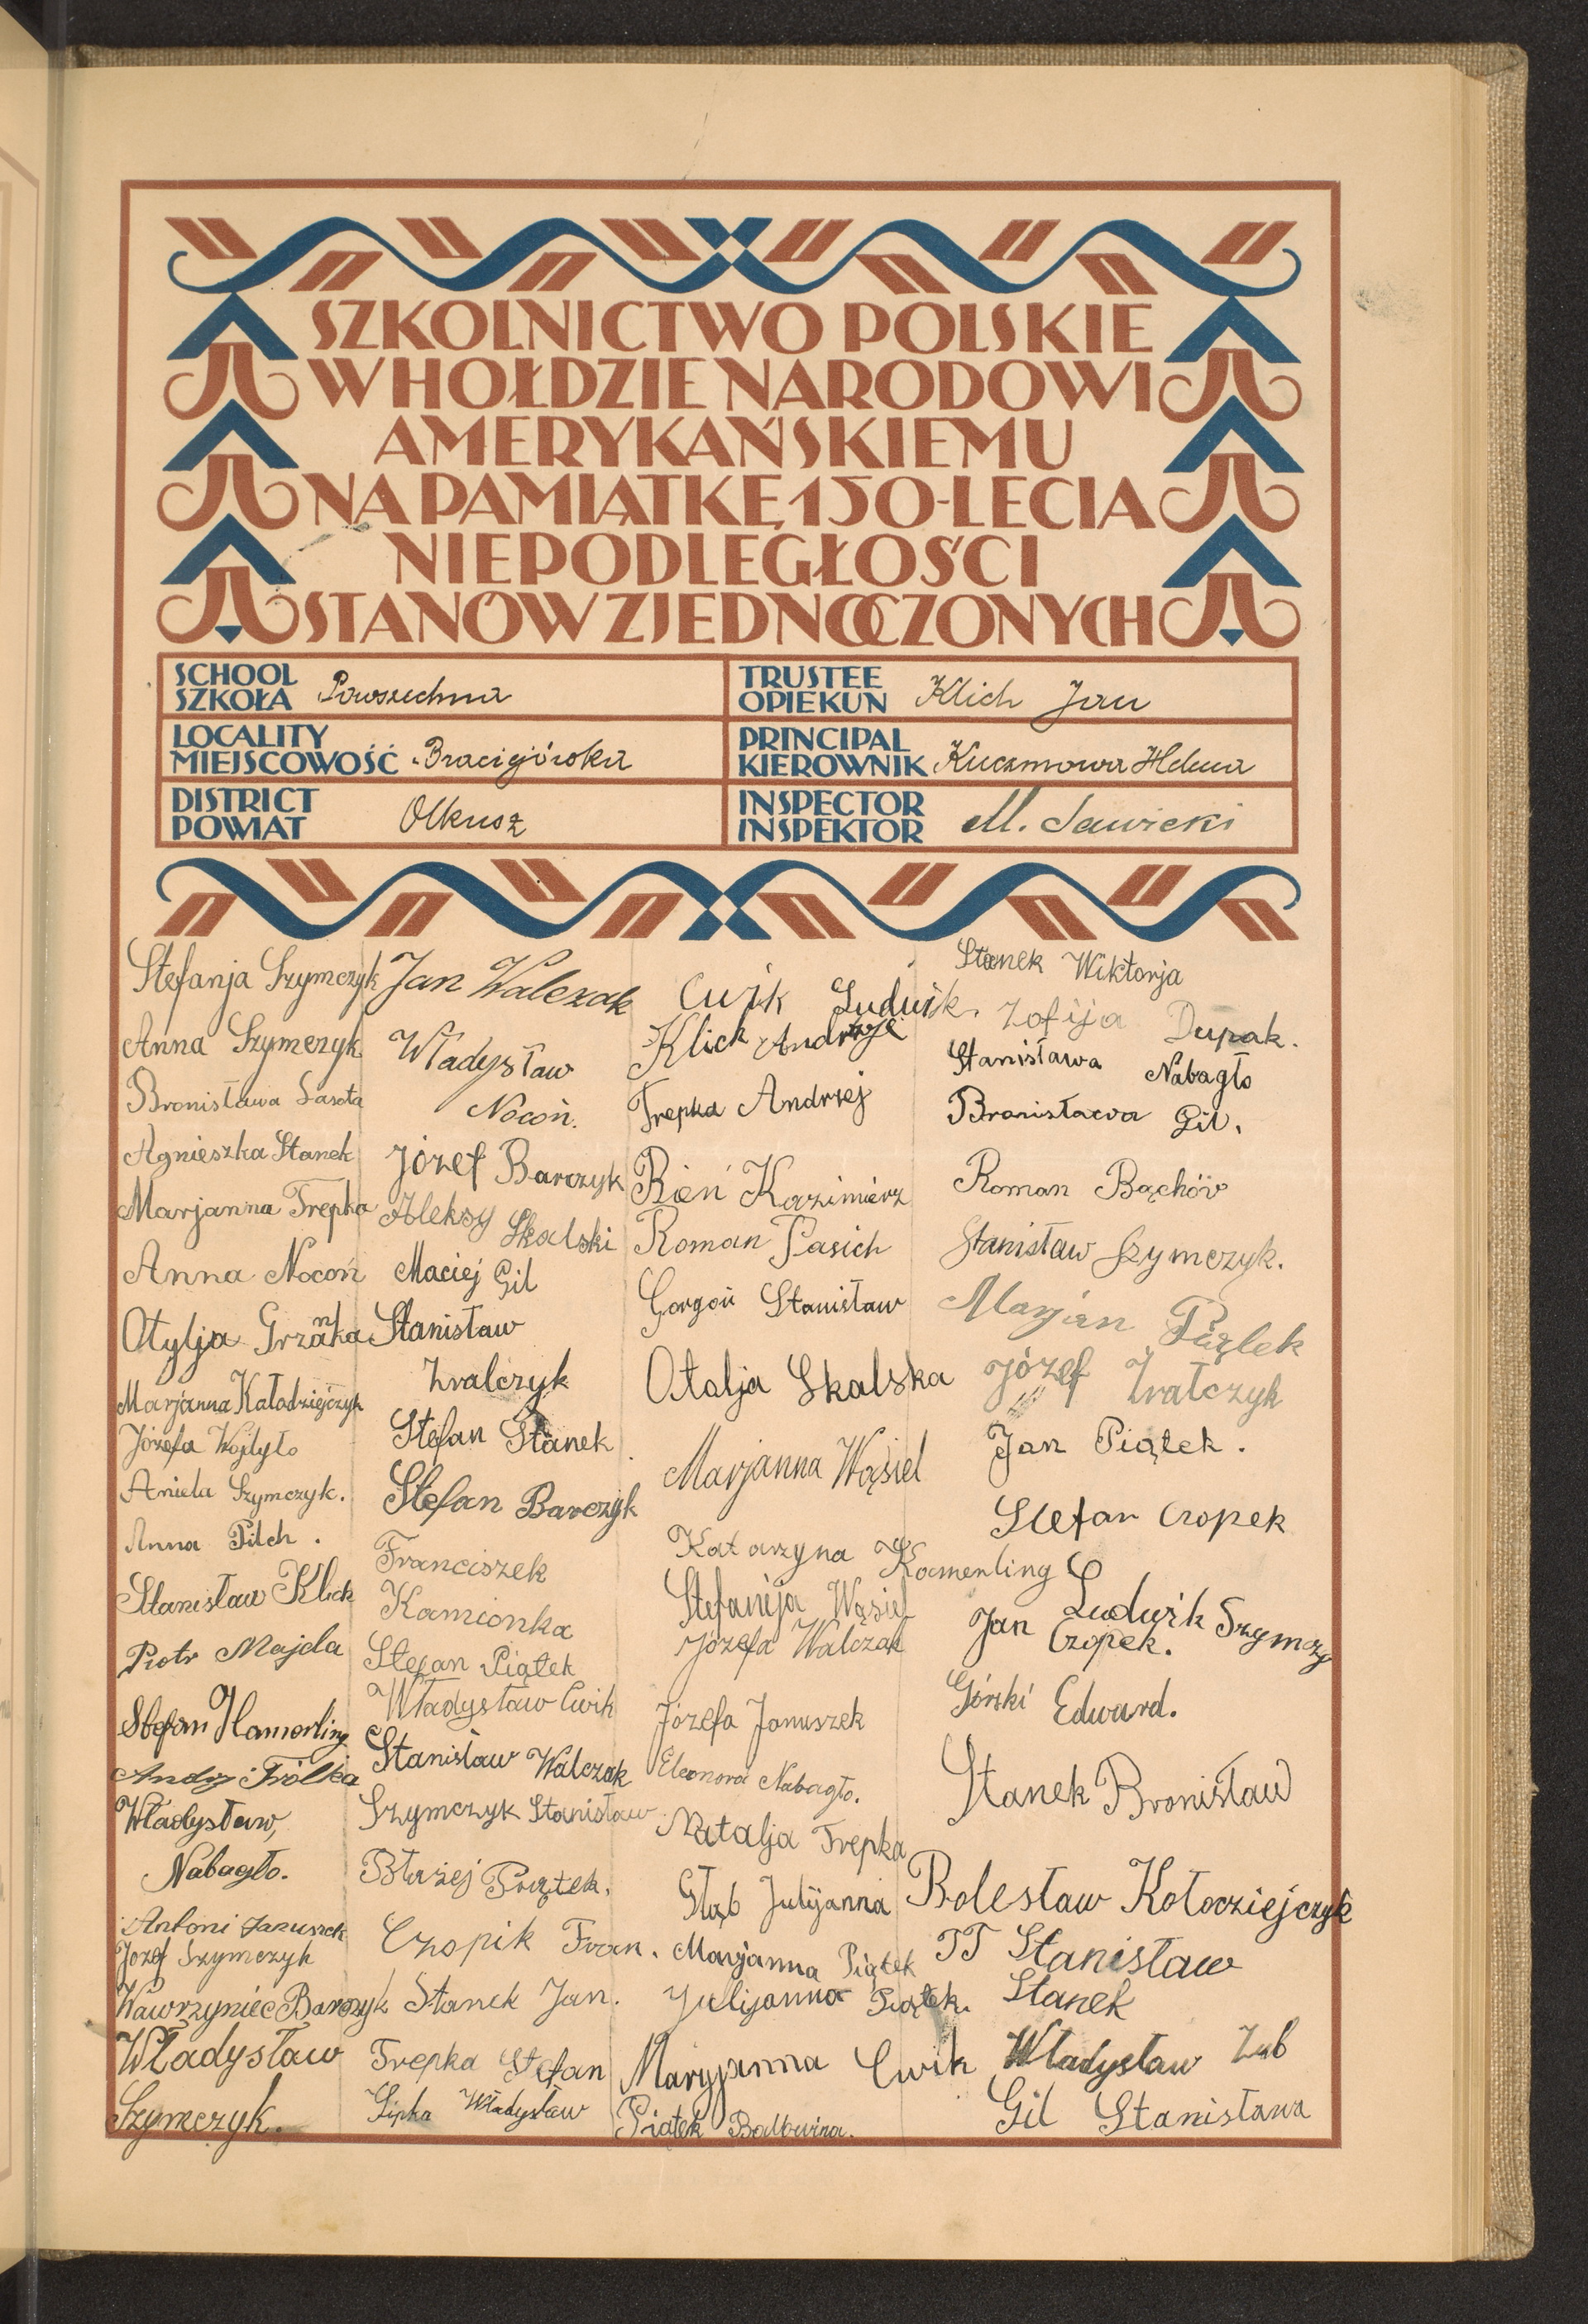 SZKOLNICTWO POLSKIE
W HOŁDZIE NARODOWI
AMERYKAŃSKIEMU
NA PAMIĄTKĘ 150-LECIA
NIEPODLEGŁOŚCI
STANÓW ZJEDNOCZONYCH
SCHOOL
SZKOŁA Powszechna
TRUSTEE
OPIEKUN Klich Jan
LOCALITY
MIEJSCOWOŚĆ Bracigórka
PRINCIPAL
KIEROWNIK Kuczmowa Helena
DISTRICT
POWIAT Olkusz
INSPECTOR
INSPEKTOR M. Sawicki
Stefanja Szymczyk
Anna Szymczyk
Bronisława Lasota
Agnieszka Stanek
Marjanna Trepka
Anna Nocoń
Otylja
Marjanna Kaładziejczyk
Józefa Wojtyło
Aniela Szymczyk.
Anna Pilch.
Stanisław Klich
Piotr Majda
Stefan Hamerling
Andrz Trólka
Władysław,
Nabagło.
Antoni Januszek
Józef Szymczyk
Wawrzyniec Barczyk
Władysław
Szymczyk.
Jan Walczak
Władysław
Nocoń.
Józef Barczyk
Aleksy Skalski
Maciej Gil
Stanisław
Zwalczyk
Stefan Stanek
Stefan Barczyk
Franciszek
Kamionka
Stefan Piątek
Władysław Ćwik
Stanisław Walczak
Szymczyk Stanisław
Błażej Piątek.
Czopik Fran.
Stanek Jan.
Trepka Stefan
Sipka Władysław
Cwik Ludwik.
Klich Andrzje
Trepka Andrzej
Bień Kazimierz
Roman Pasich
Gorgoń Stanisław
Otalja Skalska
Marjanna Wąsiel
Katarzyna Kamerling
Stefanija Wąsiel
Józefa Walczak
Józefa Januszek
Eleonora Nabagło.
Natalja Trepka
Głąb Julijanna
Marjanna Piątek
Julijanna Piątek.
Maryjanna Cwik
Piątek Balbwina.
Stanek Wiktorja
Zofija Dupak.
Stanisława Nabagło
Bronisława Gil.
Roman Bąchów
Stanisław Szymczyk.
Marjan Piątek
Józef Zwałczyk
Jan Piątek.
Stefan Czopek
Ludwik Szymczy
Jan Czopek.
Górski Edward.
Stanek Bronisław
Bolesław Kołodziejczyk
Stanisław
Stanek
Władysław Zub
Gil Stanisława